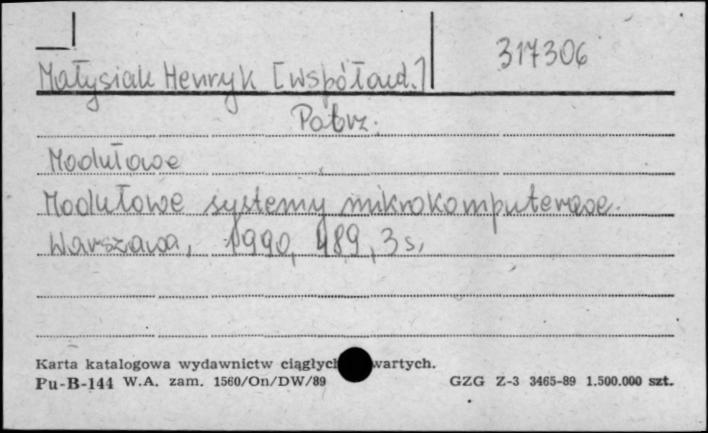 317306
Małysiak Henryk [współaut.]
Patrz.
Modułowe
Modułowe systemy mikrokomputerowe.
Warszawa, 1990, 489, 3 s,
Karta katalogowa wydawnictw ciągłyc wartych.
Pu-B-144 W.A. zam. 1560/On/DW/89 GZG Z-3 3465-89 1.500.000 szt.